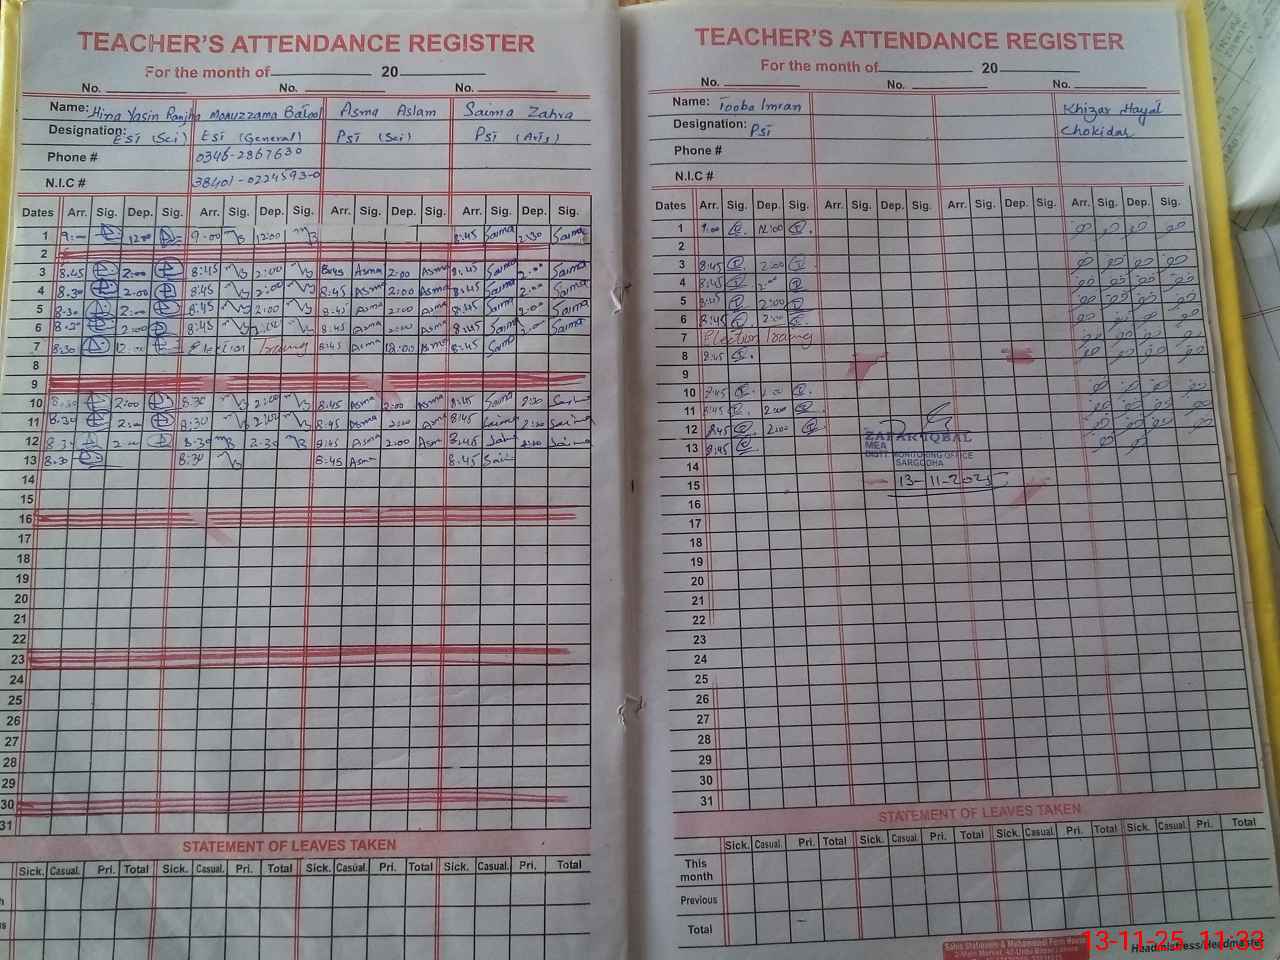 TEACHER'S ATTENDANCE REGISTER
For the month of 20
No. No. No.
Name: Hina Yasin Ranjha Monuzzama Batool Asma Aslam Saima Zahra
Designation: EST (Sci) EST (General) PST (Sci) PST (Arts)
Phone # 0346-2867630
N.I.C # 38401-0224593-0
Dates Arr. Sig. Dep. Sig. Arr. Sig. Dep. Sig. Arr. Sig. Dep. Sig. Arr. Sig. Dep. Sig.
1 9:00 12:00 9-00 12:00 8:45 Saima 2:30 Saima
2
3 8.45 2:00 8:45 2:00 8:45 Asma 2:00 Asma 8:45 Saima 2:00 Saima
4 8.30 2.00 8:45 2:00 8:45 Asma 2:00 Asma 8:45 Saima 2:00 Saima
5 8.30 2:00 8:45 2:00 8:45 Asma 2:00 Asma 8:45 Saima 2:00 Saima
6 2:00 8:45 2:00 8:45 Asma 2:00 Asma 8:45 Saima Saima
7 8:30 12:00 Election Traing 8:45 Asma 12:00 Asma 8:45 Saima
8
9
10 8:30 2:00 8:30 2:00 8:45 Asma 2:00 Asma 8:45 Saima 2:30
11 8:30 2:00 8:30 2:00 8:45 Asma 2:00 Asma 8:45 Saima 2:30 Saima
12 8:30 2:00 8:30 2:30 8:45 Asma 2:00 Asm 8:45 2:30 Saima
13 8:30 8:30 8:45 Asm 8:45
14
15
16
17
18
19
20
21
22
23
24
25
26
27
28
29
30
31
STATEMENT OF LEAVES TAKEN
Sick. Casual. Pri. Total Sick. Casual. Pri. Total Sick. Casual. Pri. Total Sick. Casual. Pri. Total
TEACHER'S ATTENDANCE REGISTER
For the month of 20
No. No. No.
Name: Tooba Imran Khizar Hayat
Designation: PST Chokidar
Phone #
N.I.C #
Dates Arr. Sig. Dep. Sig. Arr. Sig. Dep. Sig. Arr. Sig. Dep. Sig. Arr. Sig. Dep. Sig.
1 9:00 12:00
2
3 8:45 2:00
4 8:45 2:00
5 8:45 2:00
6 8:45 2:00
7 Election Traing
8 8:45
9
10 8:45
11 8:45 2:00
12 8:45 2:00
ZAFAR IQBAL
MEA
13 8:45
DISTT MONITORING OFFICE
SARGODHA
14
15 13-11-2025
16
17
18
19
20
21
22
23
24
25
26
27
28
29
30
31
STATEMENT OF LEAVES TAKEN
Sick. Casual. Pri. Total Sick. Casual. Pri. Total Sick. Casual. Pri. Total Sick. Casual. Pri. Total
This month
Previous
Total
Headmistress/Headmaster
13-11-25 11:33